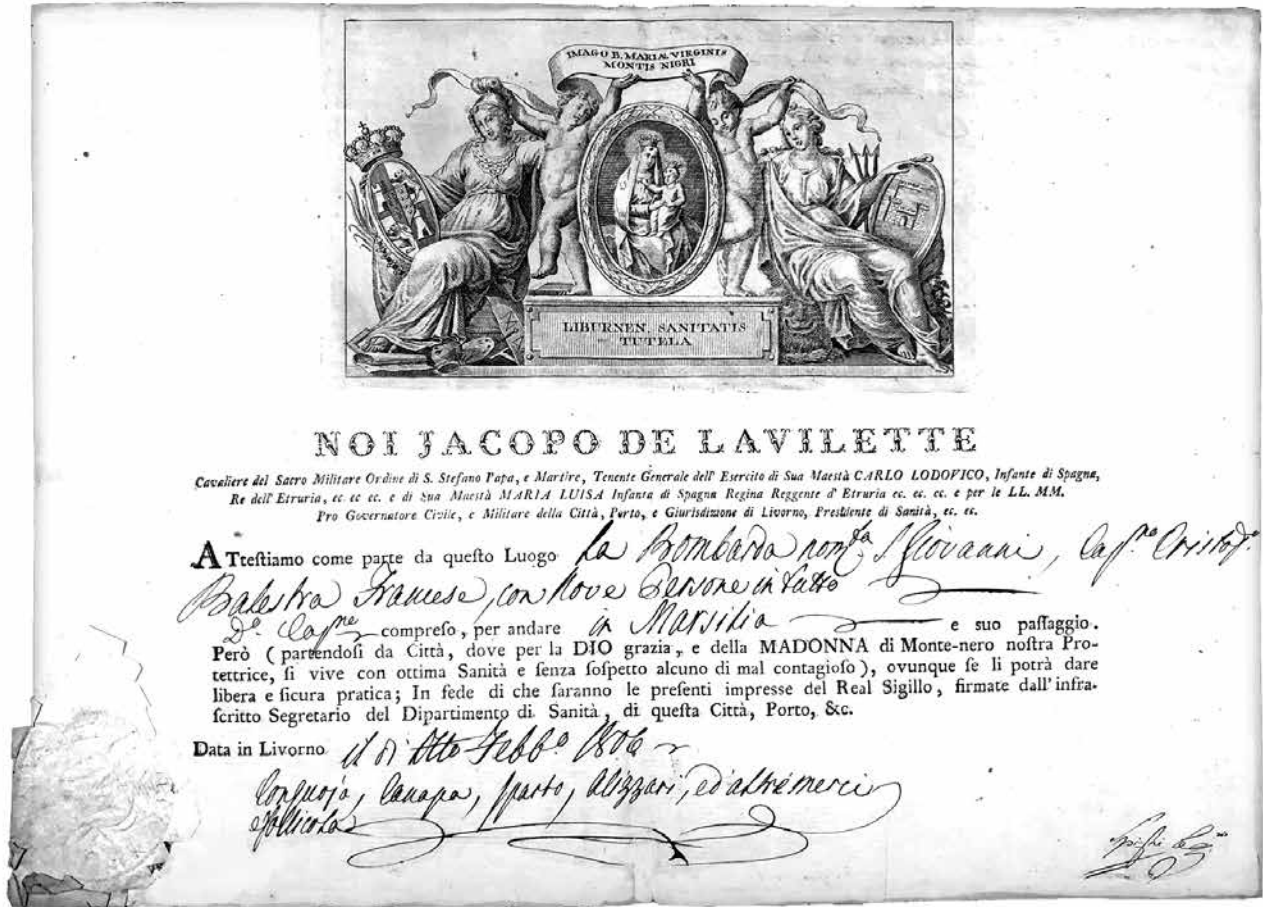 IMAGO B. MARIÆ VIRGINIS
MONTIS NIGRI
LIBURNEN. SANITATIS
TUTELA
NOI JACOPO DE LAVILETTE
Cavaliere del Sacro Militare Ordine di S. Stefano Papa, e Martire, Tenente Generale dell' Esercito di Sua Maestà CARLO LODOVICO, Infante di Spagna,
Re dell' Etruria, ec. ec ec. e di Sua Maestà MARIA LUISA Infanta di Spagna Regina Reggente d' Etruria ec. ec. ec. e per le LL. MM.
Pro Governatore Civile, e Militare della Città, Porto, e Giurisdizione di Livorno, Presidente di Sanità, ec. ec.
ATteſtiamo come parte da queſto Luogo la Bombarda nomta S Giovanni, Capne Cristofo
Balestra Francese, con Nove Persone in tutto
Do Capne compreſo, per andare in Marsilia e suo paſſaggio.
Però (partendoſi da Città, dove per la DIO grazia, e della MADONNA di Monte-nero noſtra Pro-
tettrice, ſi vive con ottima Sanità e ſenza ſoſpetto alcuno di mal contagioſo), ovunque ſe li potrà dare
libera e ſicura pratica; In fede di che ſaranno le preſenti impresse del Real Sigillo, firmate dall'infra-
ſcritto Segretario del Dipartimento di Sanità, di queſta Città, Porto, &c.
Data in Livorno il dì Otto Febbo 1806
Conquoja, Canapa, sparto, Alizzari, ed altre merci